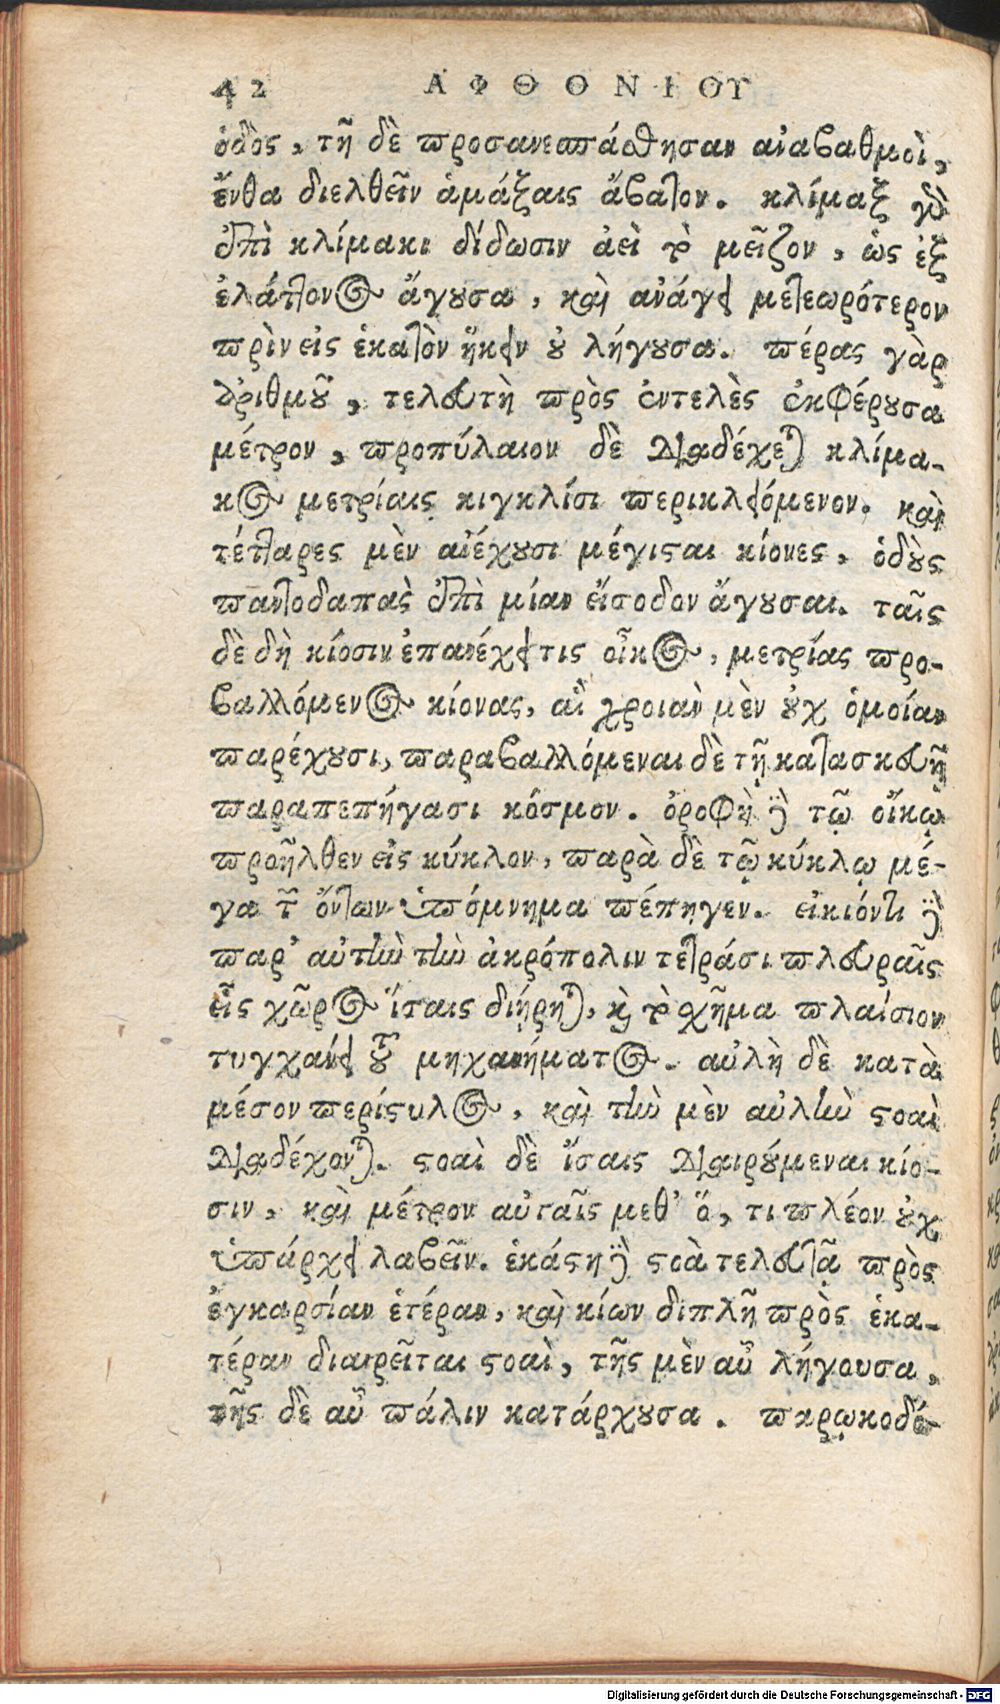 42 ΑΦΘΟΝΙΟΥ
ὁδὸς, τῇ δὲ προσανεσπάσθησαν ἀναβαθμοὶ,
ἔνθα διελθεῖν ἁμάξαις ἄβατον. κλίμαξ γὰρ
ἐπὶ κλίμακι δίδωσιν ἀεὶ τὸ μεῖζον, ὡς ἐξ
ἐλάττονος ἄγουσα, καὶ ἀνάγει μετεωρότερον
πρὶν εἰς ἑκατὸν ἥκειν οὐ λήγουσα. πέρας γὰρ
ἀριθμοῦ, τελευτὴ πρὸς ἐντελὲς ἐκφέρουσα
μέτρον, προπύλαιον δὲ διαδέχεται κλίμα-
κος μετρίαις κιγκλίσι περικλειόμενον. καὶ
τέτταρες μὲν ἀνέχουσι μέγισται κίονες, ὁδοὺς
παντοδαπὰς ἐπὶ μίαν εἴσοδον ἄγουσαι. ταῖς
δὲ δὴ κίοσιν ἐπανέχει τις οἶκος, μετρίας προ-
βαλλόμενος κίονας, αἳ χροιὰν μὲν οὐχ ὁμοίαν
παρέχουσι, παραβαλλόμεναι δὲ τῇ κατασκευῇ
παραπεπήγασι κόσμον. ὀροφὴ δὲ τῷ οἴκῳ
προῆλθεν εἰς κύκλον, παρὰ δὲ τῷ κύκλῳ μέ-
γα τῶν ὄντων ὑπόμνημα πέπηγεν. εἰκιόντι δὲ
παρ' αὐτὴν τὴν ἀκρόπολιν τέτρασι πλευραῖς
εἷς χῶρος ἴσαις διῄρηται, καὶ τὸ χῆμα πλαίσιον
τυγχάνει τοῦ μηχανήματος. αὐλὴ δὲ κατὰ
μέσον περίστυλος, καὶ τὴν μὲν αὐλὴν στοαὶ
διαδέχονται. στοαὶ δὲ ἴσαις διαιρούμεναι κίο-
σιν, καὶ μέτρον αὐταῖς μεθ' ὅ, τι πλέον οὐχ
ὑπάρχει λαβεῖν. ἑκάστη δὲ στοὰ τελευτᾷ πρὸς
ἐγκαρσίαν ἑτέραν, καὶ κίων διπλῆ πρὸς ἑκα-
τέραν διαιρεῖται στοαὶ, τῆς μὲν αὖ λήγουσα,
τῆς δὲ αὖ πάλιν κατάρχουσα. παρῳκοδό-
Digitalisierung gefördert durch die Deutsche Forschungsgemeinschaft - DFG